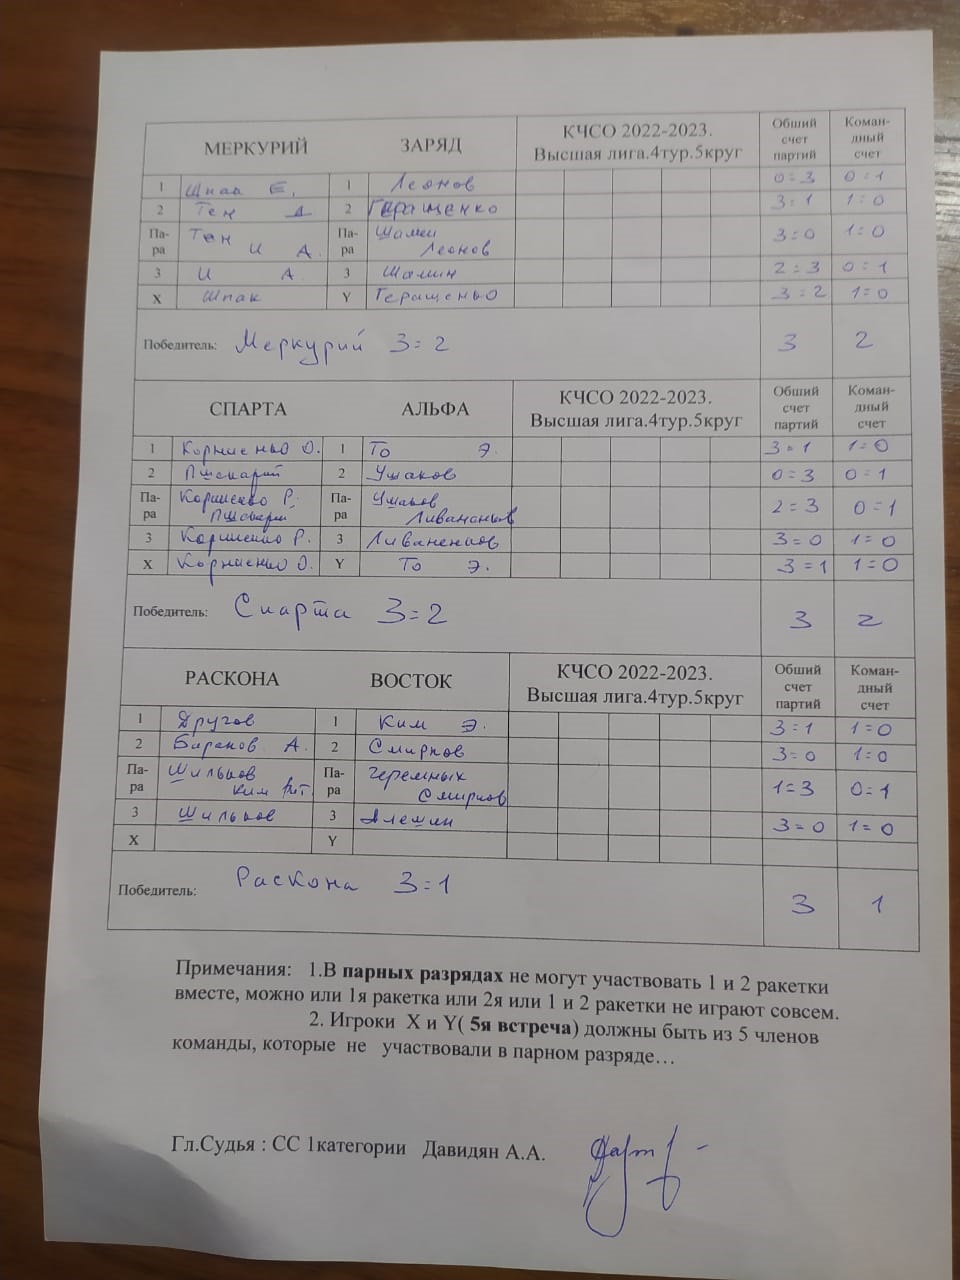 МЕРКУРИЙ ЗАРЯД КЧСО 2022-2023. Общий Коман-
Высшая лига.4тур.5круг счет дный
партий счет
1 Шпак Е. 1 Леонов 0=3 0=1
2 Тен Д 2 Геращенко 3=1 1=0
Па- Тен Па- Шамин 3=0 1=0
ра И А. ра Леонов
3 И А. 3 Шамин 2=3 0=1
X Шпак Y Геращенко 3=2 1=0
Победитель: Меркурий 3=2 3 2
СПАРТА АЛЬФА КЧСО 2022-2023. Общий Коман-
Высшая лига.4тур.5круг счет дный
партий счет
1 Корниенко О. 1 То Э. 3=1 1=0
2 2 Ушаков 0=3 0=1
Па- Корниенко Р. Па- Ушаков 2=3 0=1
ра ра Ливаненков
3 Корниенко Р. 3 Ливаненков 3=0 1=0
X Корниенко О. Y То Э. 3=1 1=0
Победитель: Спарта 3=2 3 2
РАСКОНА ВОСТОК КЧСО 2022-2023. Общий Коман-
Высшая лига.4тур.5круг счет дный
партий счет
1 Другов 1 Ким Э. 3=1 1=0
2 Баранов А. 2 Смирнов 3=0 1=0
Па- Шильков Па- Черемных 1=3 0=1
ра Ким ра Смирнов
3 Шильков 3 Алешин 3=0 1=0
X Y
Победитель: Раскона 3=1 3 1
Примечания: 1.В парных разрядах не могут участвовать 1 и 2 ракетки
вместе, можно или 1я ракетка или 2я или 1 и 2 ракетки не играют совсем.
2. Игроки X и Y( 5я встреча) должны быть из 5 членов
команды, которые не участвовали в парном разряде…
Гл.Судья : СС 1категории Давидян А.А.